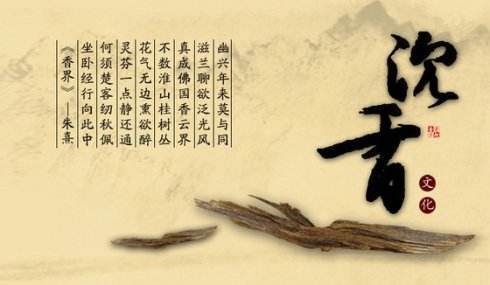 沉香
文化
幽兴年来莫与同
滋兰聊欲泛光风
真成佛国香云界
不数淮山桂树丛
花气无边熏欲醉
灵芬一点静还通
何须楚客纫秋佩
坐卧经行向此中
《香界》——朱熹